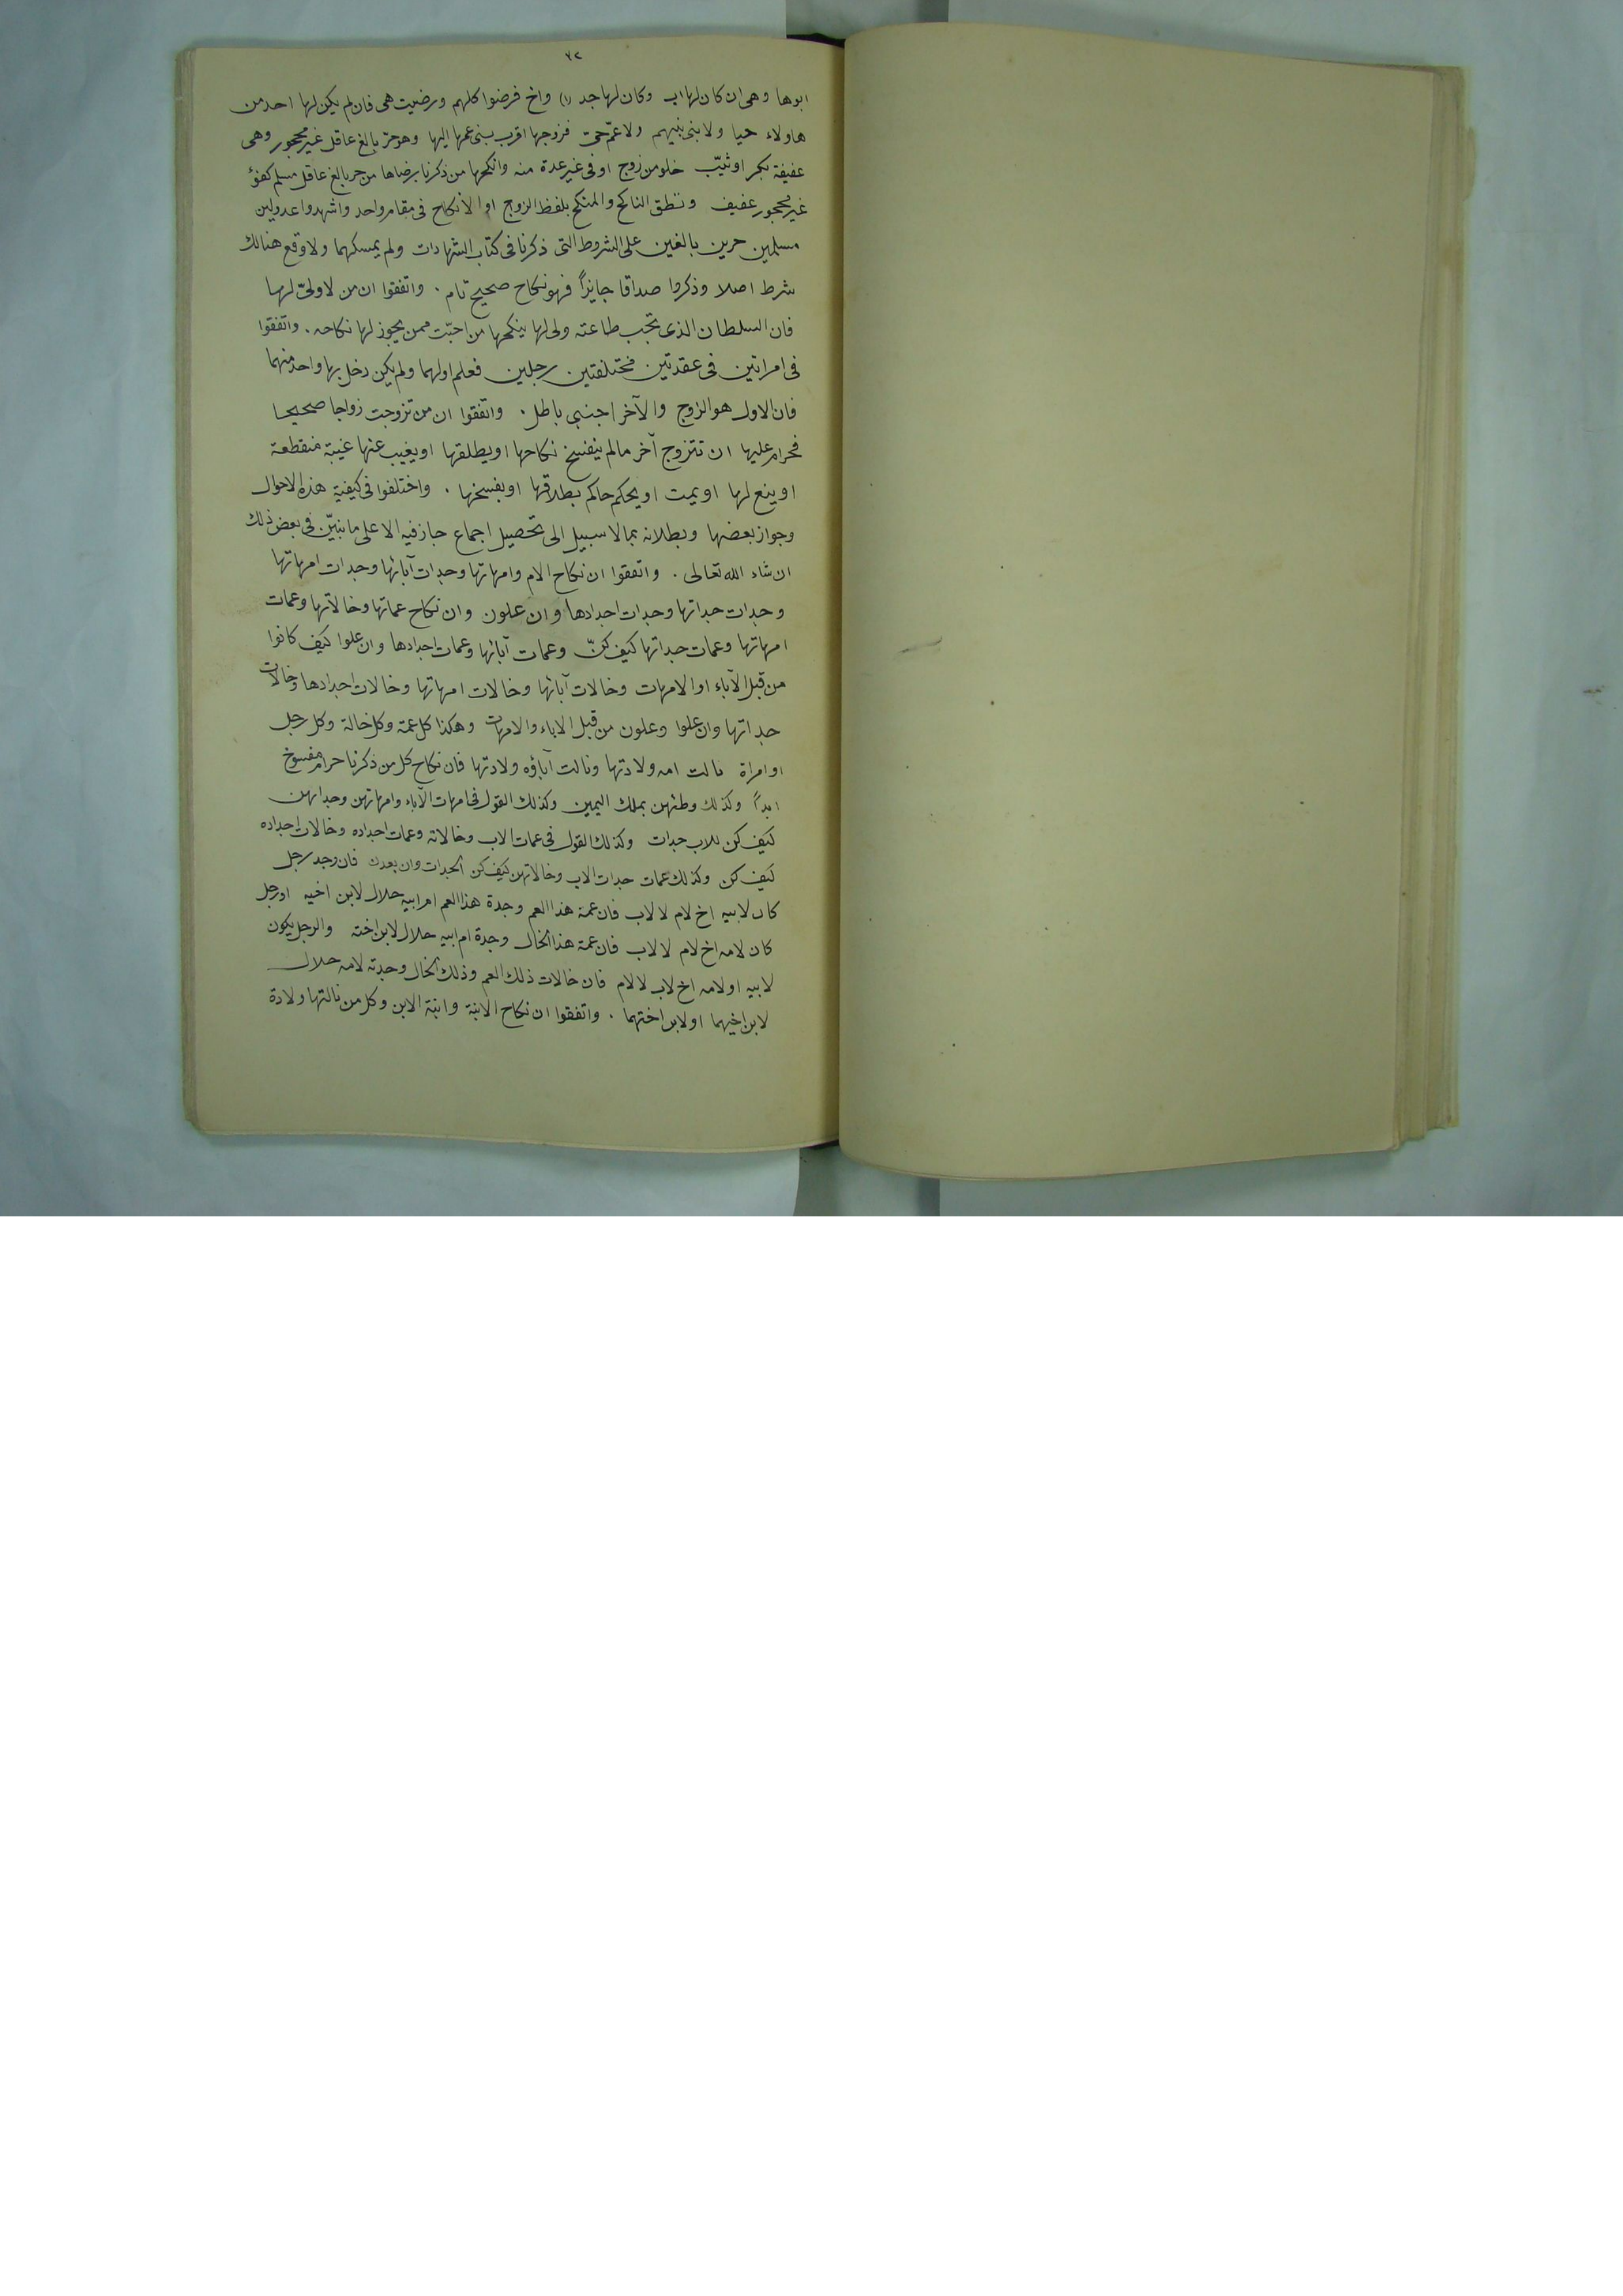 ٧٢
ابوها وهى ان كان لها اب وكان لها جد (١) واخ فرضوا كلهم ورضيت هى فان لم يكن لها احد من
هاولاء حيا ولا بنى بنيهم ولا عمّ حىّ فزوجها اقرب بنى عمها اليها وهو حرّ بالغ عاقل غير محجور وهى
عفيفة بكر او ثيّب خلو من زوج او فى غير عدة منه وانكحها من ذكرنا برضاها من حر بالغ عاقل مسلم كفؤ
غير محجور عفيف ونطق الناكح والمنكح بلفظ الزوج او الانكاح فى مقام واحد واشهدوا عدولين
مسلمين حرين بالغين على الشروط التى ذكرنا فى كتاب الشهادات ولم يمسكهما ولا وقع هنالك
شرط اصلا وذكروا صداقا جايزاً فهو نكاح صحيح تام . واتفقوا ان من لا ولىّ لها
فان السلطان الذى تجب طاعته ولى لها ينكحها من احبّت ممن يجوز لها نكاحه . واتفقوا
فى امراتين فى عقدتين مختلفتين رجلين فعلم اولهما ولم يكن دخل بها واحد منهما
فان الاول هو الزوج والآخر اجنبى باطل . واتفقوا ان من تزوجت زواجا صحيحا
فحرام عليها ان تتزوج آخر مالم ينفسخ نكاحها او يطلقها او يغيب عنها غيبة منقطعة
او ينع لها او يمت او يحكم حاكم بطلاقها او بفسخها . واختلفوا فى كيفية هذه الاحوال
وجواز بعضها وبطلانه بما لا سبيل الى تحصيل اجماع جاز فيه الا على ما نبيّن فى بعض ذلك
ان شاء الله تعالى . واتفقوا ان نكاح الام وامهاتها وجدات آبائها وجدات امهاتها
وجدات جداتها وجدات اجدادها وان علون وان نكاح عماتها وخالاتها وعمات
امهاتها وعمات جداتها كيف كنّ وعمات آبائها وعمات اجدادها وان علوا كيف كانوا
من قبل الآباء او الامهات وخالات آبائها وخالات امهاتها وخالات اجدادها وخالات
جداتها وان علوا وعلون من قبل الاباء والامهات وهكذا كل عمة وكل خالة وكل رجل
او امراة نالت امه ولادتها ونالت آباؤه ولادتها فان نكاح كل من ذكرنا حرام مفسوخ
ابداً وكذلك وطئهن بملك اليمين وكذلك القول فى امهات الآباء وامهاتهن وجداتهن
كيف كن للاب جدات وكذلك القول فى عمات الاب وخالاته وعمات اجداده وخالات اجداده
كيف كن وكذلك عمات جدات الاب وخالاتهن كيف كن الجدات وان بعدت فان وجد رجل
كان لابيه اخ لام لا لاب فان عمة هذا العم وجدة هذا العم ام ابيه حلال لابن اخيه او رجل
كان لامه اخ لام لا لاب فان عمة هذا الخال وجدة ام ابيه حلال لابن اخته والرجل يكون
لابيه او لامه اخ لاب لا لام فان خالات ذلك العم وذلك الخال وجدته لامه حلال
لابن اخيهما او لابن اختهما . واتفقوا ان نكاح الابنة وابنة الابن وكل من نالتها ولادة